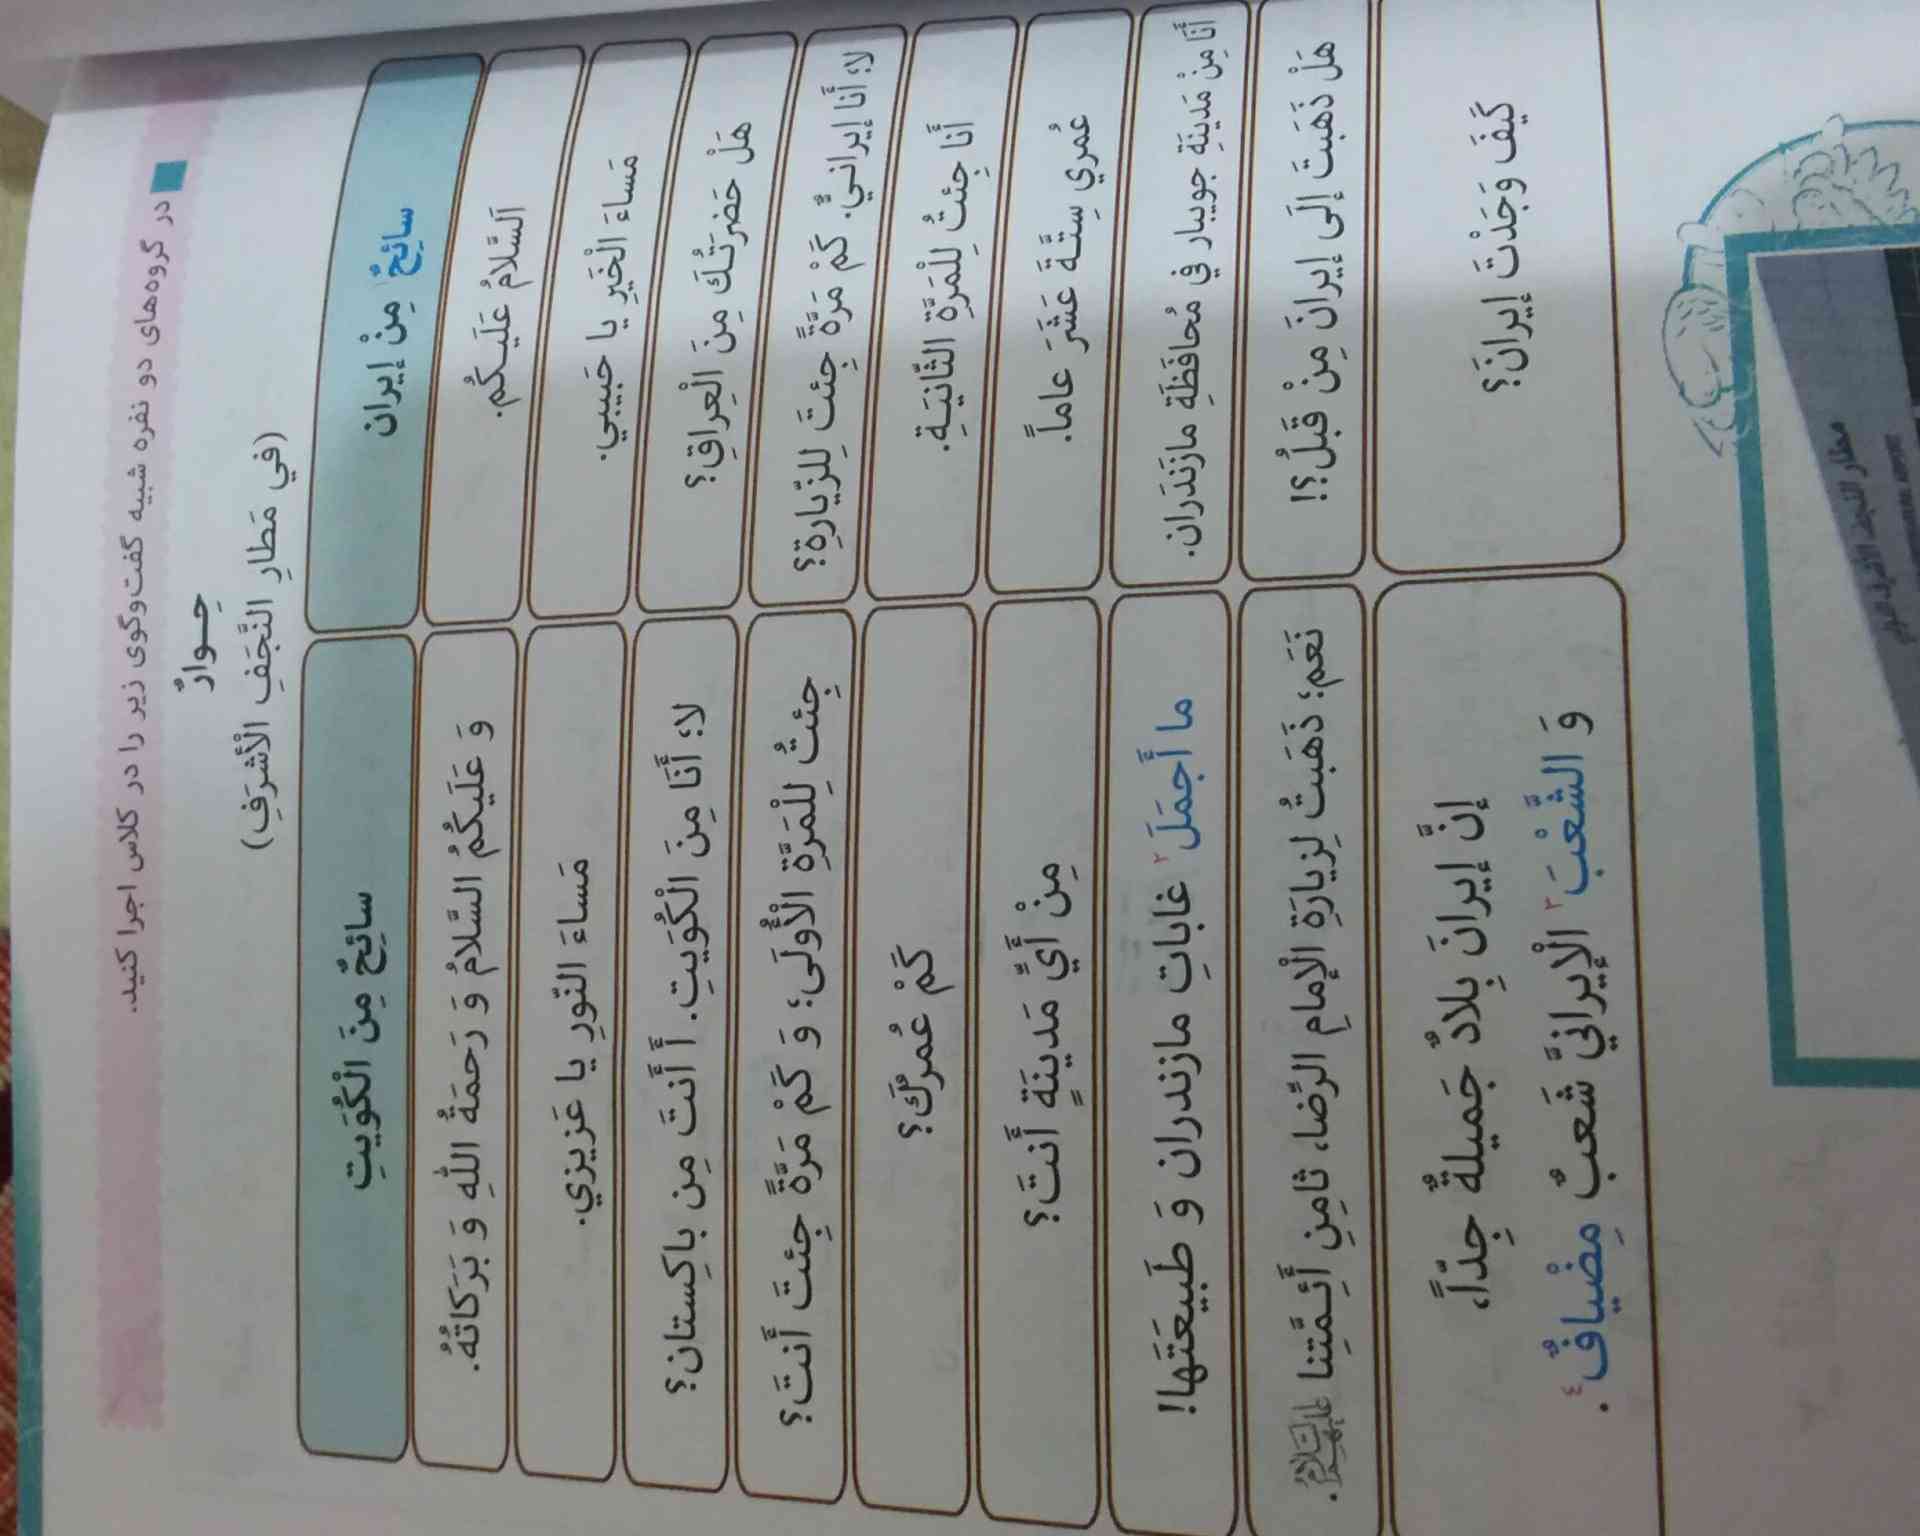 در گروه‌های دو نفره شبیه گفت‌وگوی زیر را در کلاس اجرا کنید.
حِــوارٌ
(في مَطارِ النَّجَفِ الْأَشرَفِ)
سائِحٌ مِنْ إيران
سائِحٌ مِنَ الْكُوَيتِ
اَلسَّلامُ عَلَيكُم.
وَ عَلَيكُمُ السَّلامُ وَ رَحمَةُ اللهِ وَ بَرَكاتُهُ.
مَساءَ الْخَيرِ يا حَبيبي.
مَساءَ النّورِ يا عَزيزي.
هَلْ حَضرَتُكَ مِنَ الْعِراقِ؟
لا؛ أَنَا مِنَ الْكُوَيتِ. أَ أَنتَ مِن باكِستان؟
لا؛ أَنَا إيرانيٌّ. كَمْ مَرَّةً جِئتَ لِلزّيارةِ؟
جِئتُ لِلْمَرَّةِ الْأُولَى؛ وَ كَمْ مَرَّةً جِئتَ أَنتَ؟
أَنا جِئتُ لِلْمَرَّةِ الثّانيَةِ.
كَمْ عُمرُكَ؟
عُمري سِتَّةَ عَشَرَ عاماً.
مِنْ أَيِّ مَدينَةٍ أَنتَ؟
أَنَا مِنْ مَدينَةِ جويبار في مُحافَظَةِ مازَندَران.
ما أَجمَلَ ٢ غاباتِ مازندران وَ طَبيعَتَها!
هَلْ ذَهَبتَ إلَى إيرانَ مِنْ قَبلُ؟!
نَعَم؛ ذَهَبتُ لِزيارَةِ الْإمامِ الرِّضا، ثامِنِ أَئِـمَّتِنا عَلَيهِمُ السَّلامُ.
كَيفَ وَجَدْتَ إيرانَ؟
إنَّ إيرانَ بِلادٌ جَميلةٌ جِدّاً،
وَ الشَّعْبَ ٣ الْإيرانيَّ شَعبٌ مِضْيافٌ ٤.
مطار النجف الاشرف الدولي